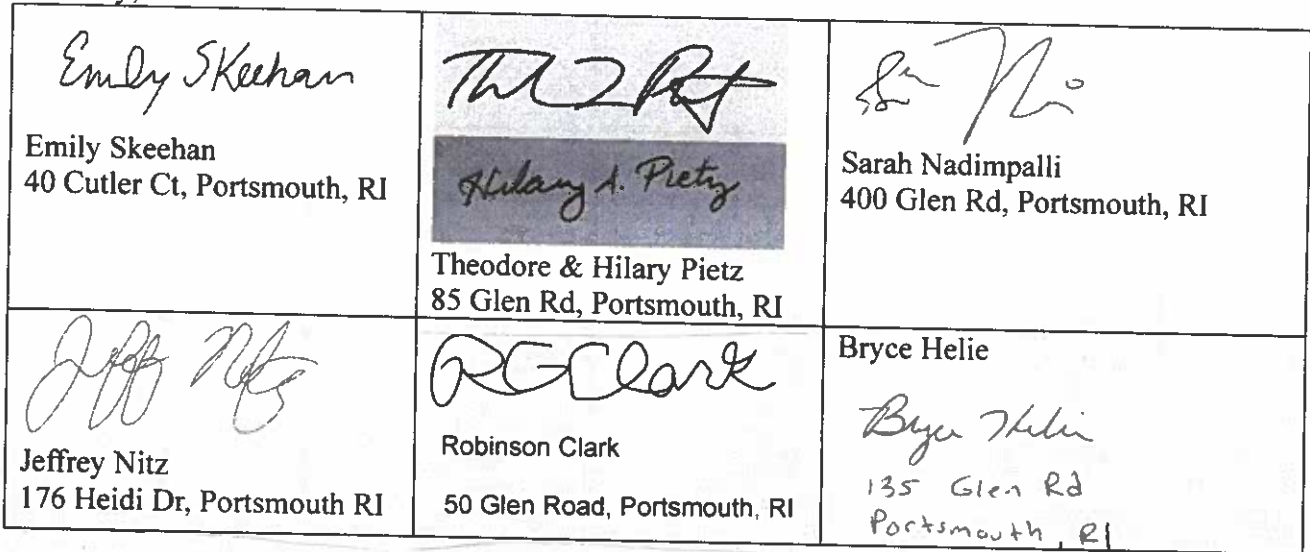 Emily Skeehan
Emily Skeehan
40 Cutler Ct, Portsmouth, RI
Hilary A. Pietz
Theodore & Hilary Pietz
85 Glen Rd, Portsmouth, RI
Sarah Nadimpalli
400 Glen Rd, Portsmouth, RI
Jeff Nitz
Jeffrey Nitz
176 Heidi Dr, Portsmouth RI
RGClark
Robinson Clark
50 Glen Road, Portsmouth, RI
Bryce Helie
Bryce Helie
135 Glen Rd
Portsmouth, RI